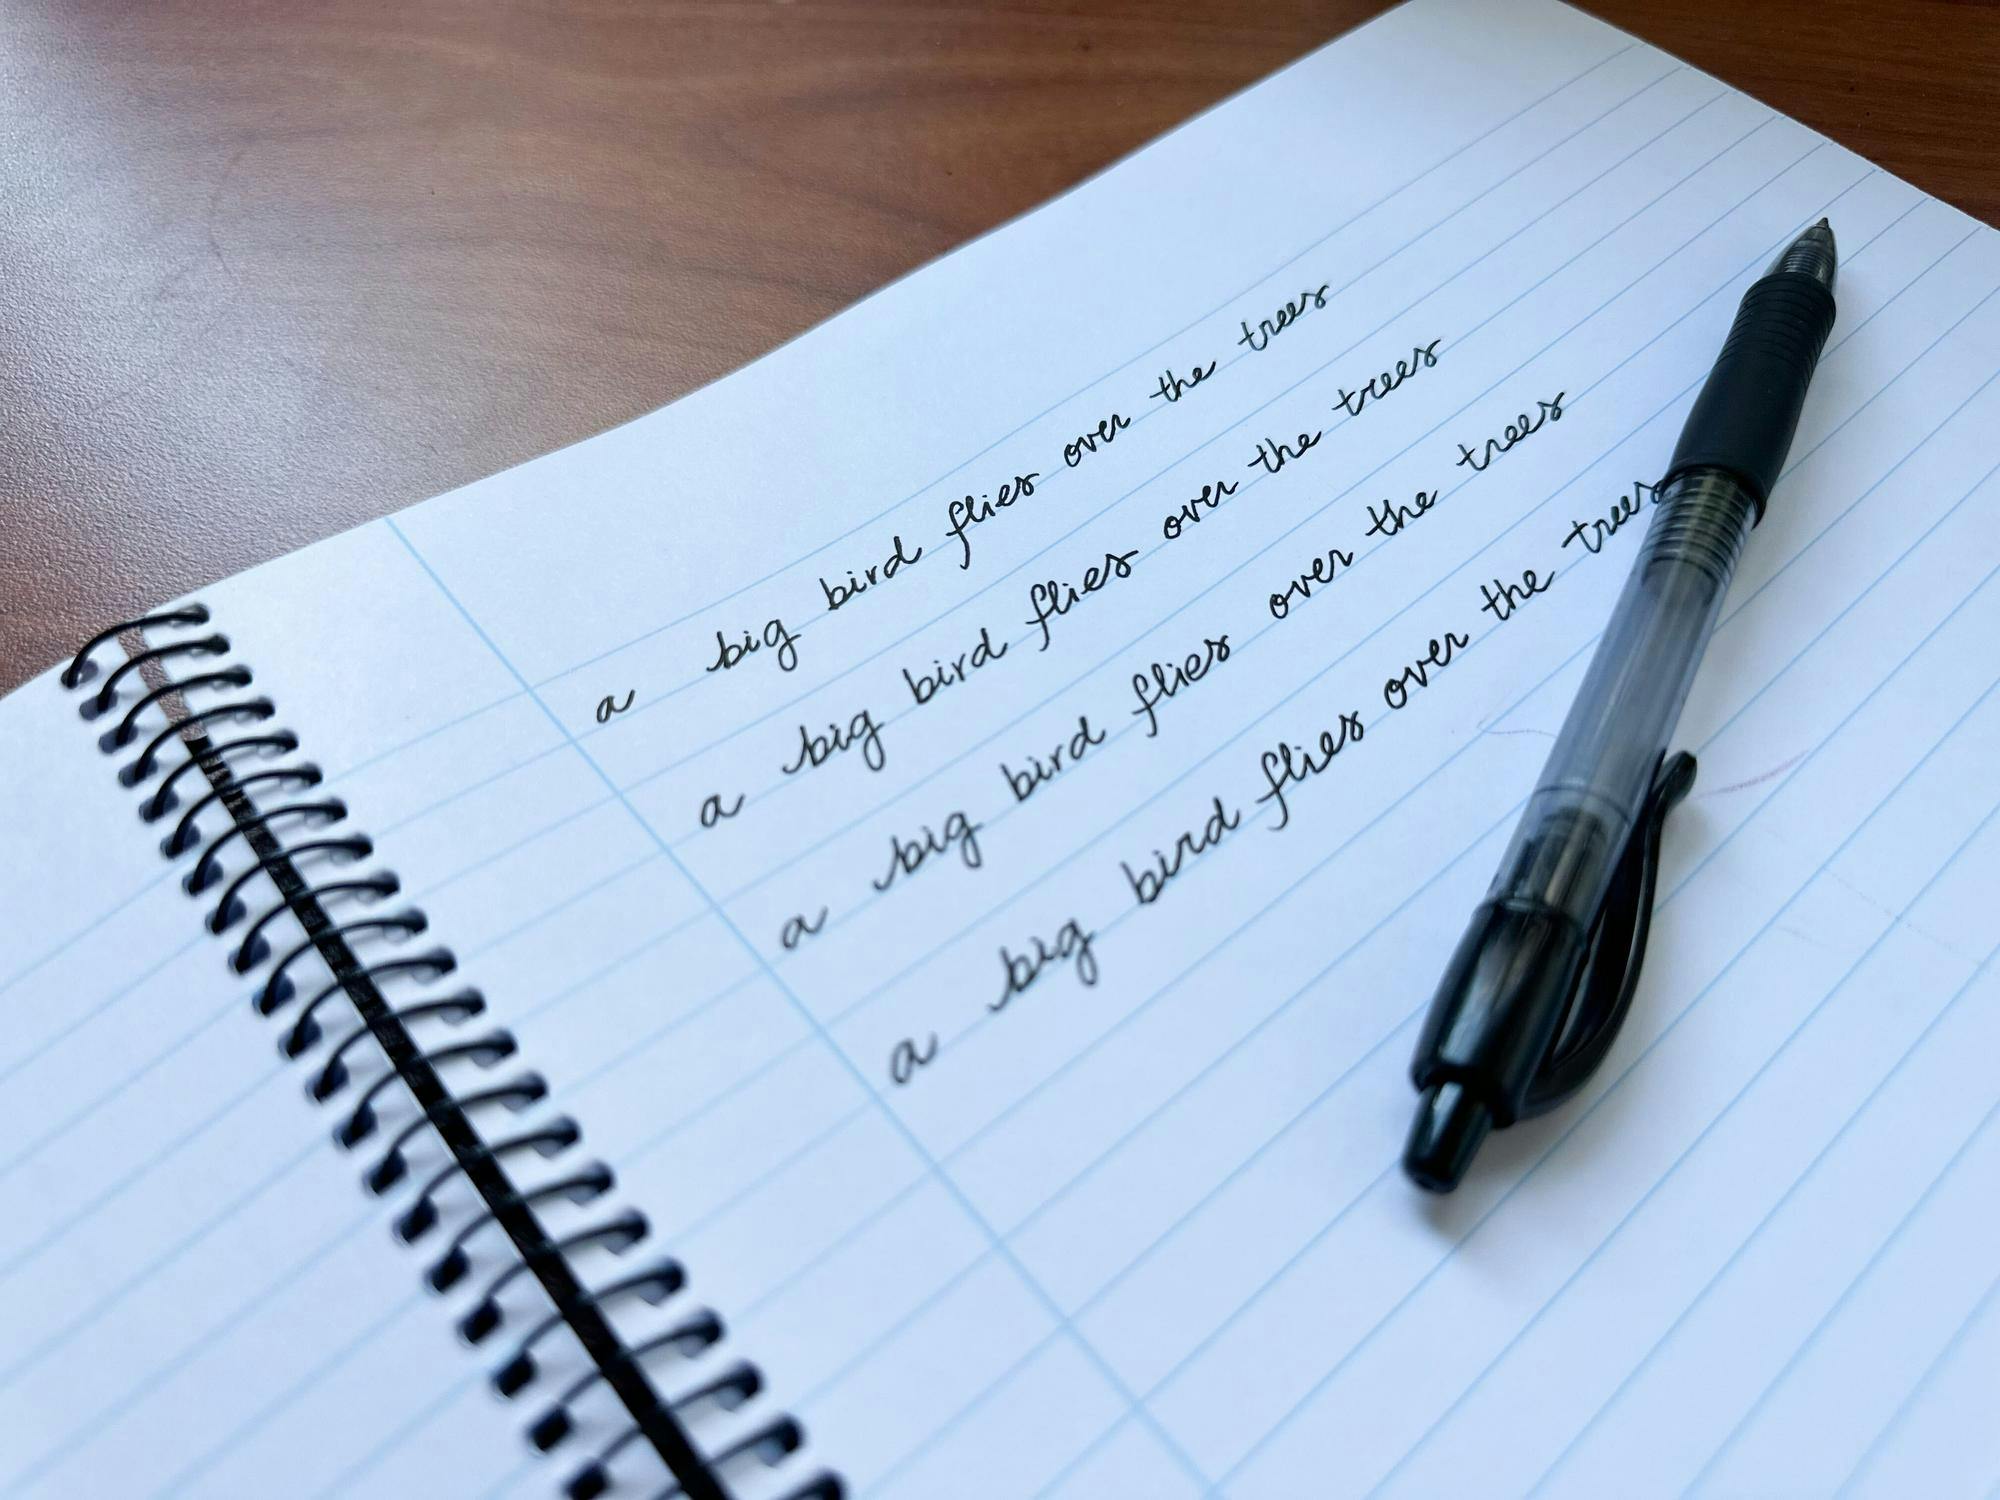 a big bird flies over the trees
a big bird flies over the trees
a big bird flies over the trees
a big bird flies over the trees